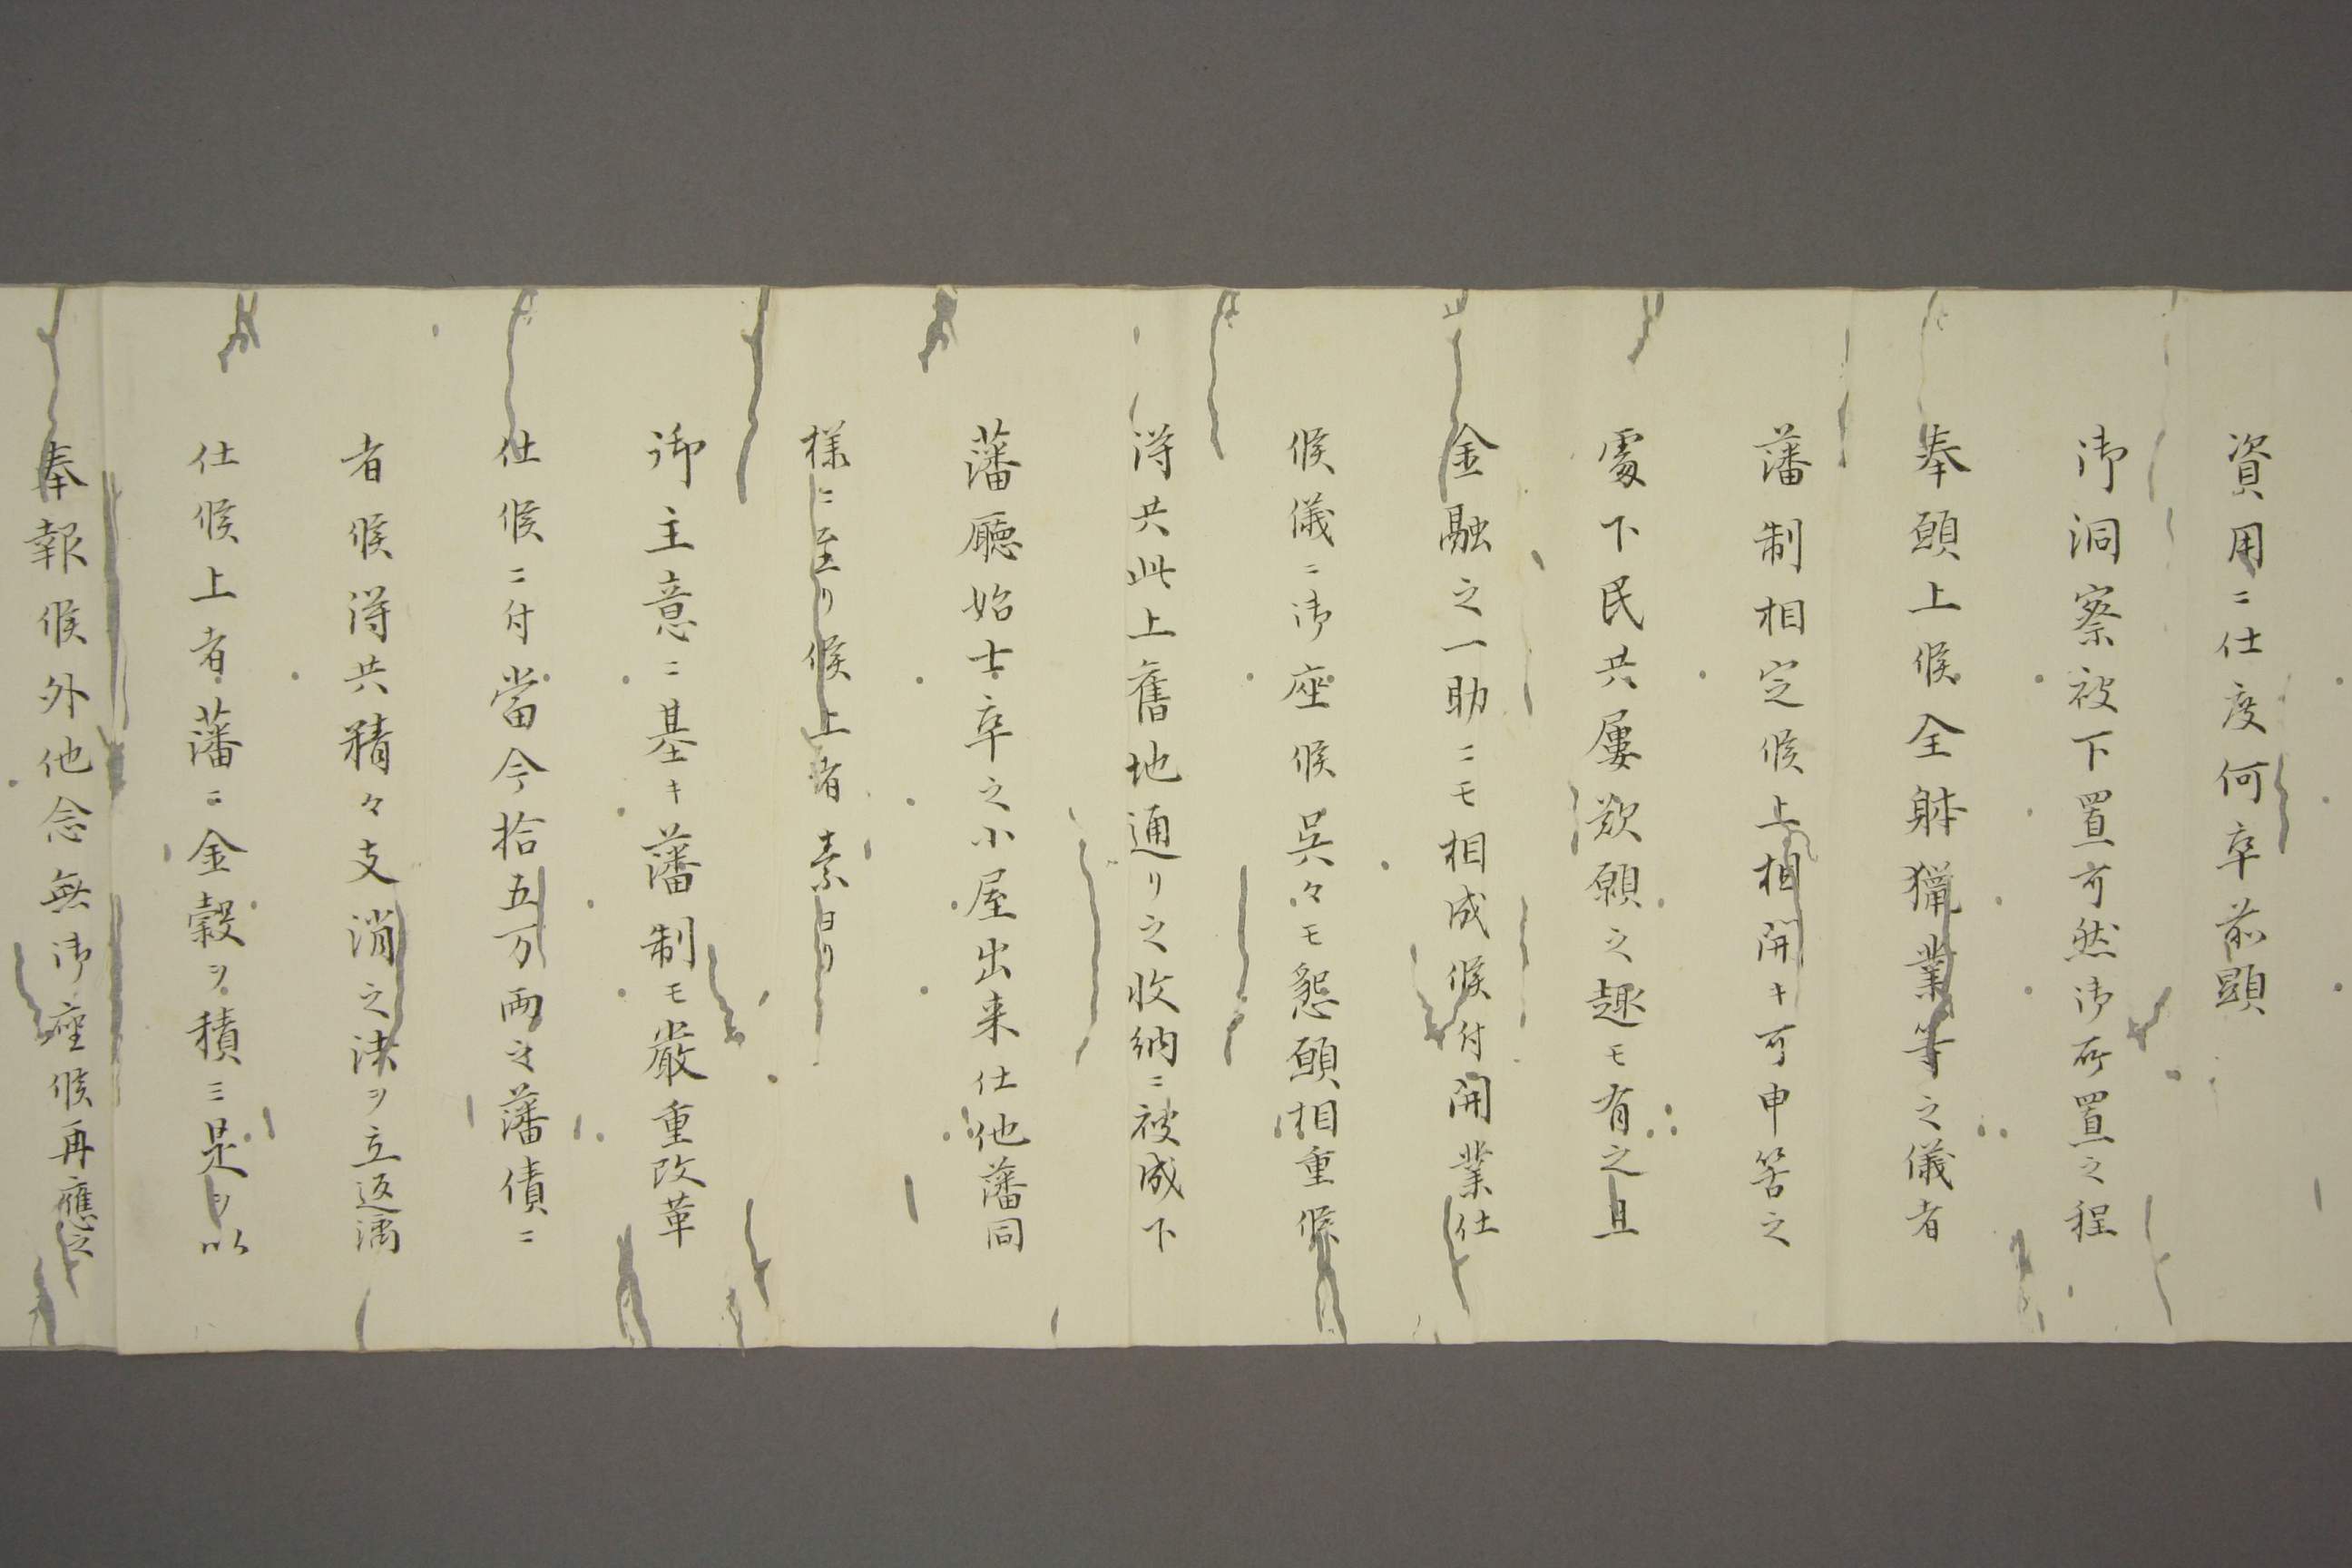 資用ニ仕度何卒前顕
御洞察被下置可然御所置之程
奉願上候全躰猟業等之儀者
藩制相定候上相開キ可申筈之
處下民共屢歎願之趣モ有之且
金融之一助ニモ相成候付開業仕
候儀ニ御座候呉々モ懇願相重候
得共此上舊地通リ之收納ニ被成下
藩廳始士卒之小屋出来仕他藩同
様ニ至リ候上者素ヨリ
御主意ニ基キ藩制モ嚴重改革
仕候ニ付當今拾五万両之藩債ニ
者候得共精々支消之決ヲ立返済
仕候上者藩ニ金穀ヲ積ミ是ヲ以
奉報候外他念無御座候再應之